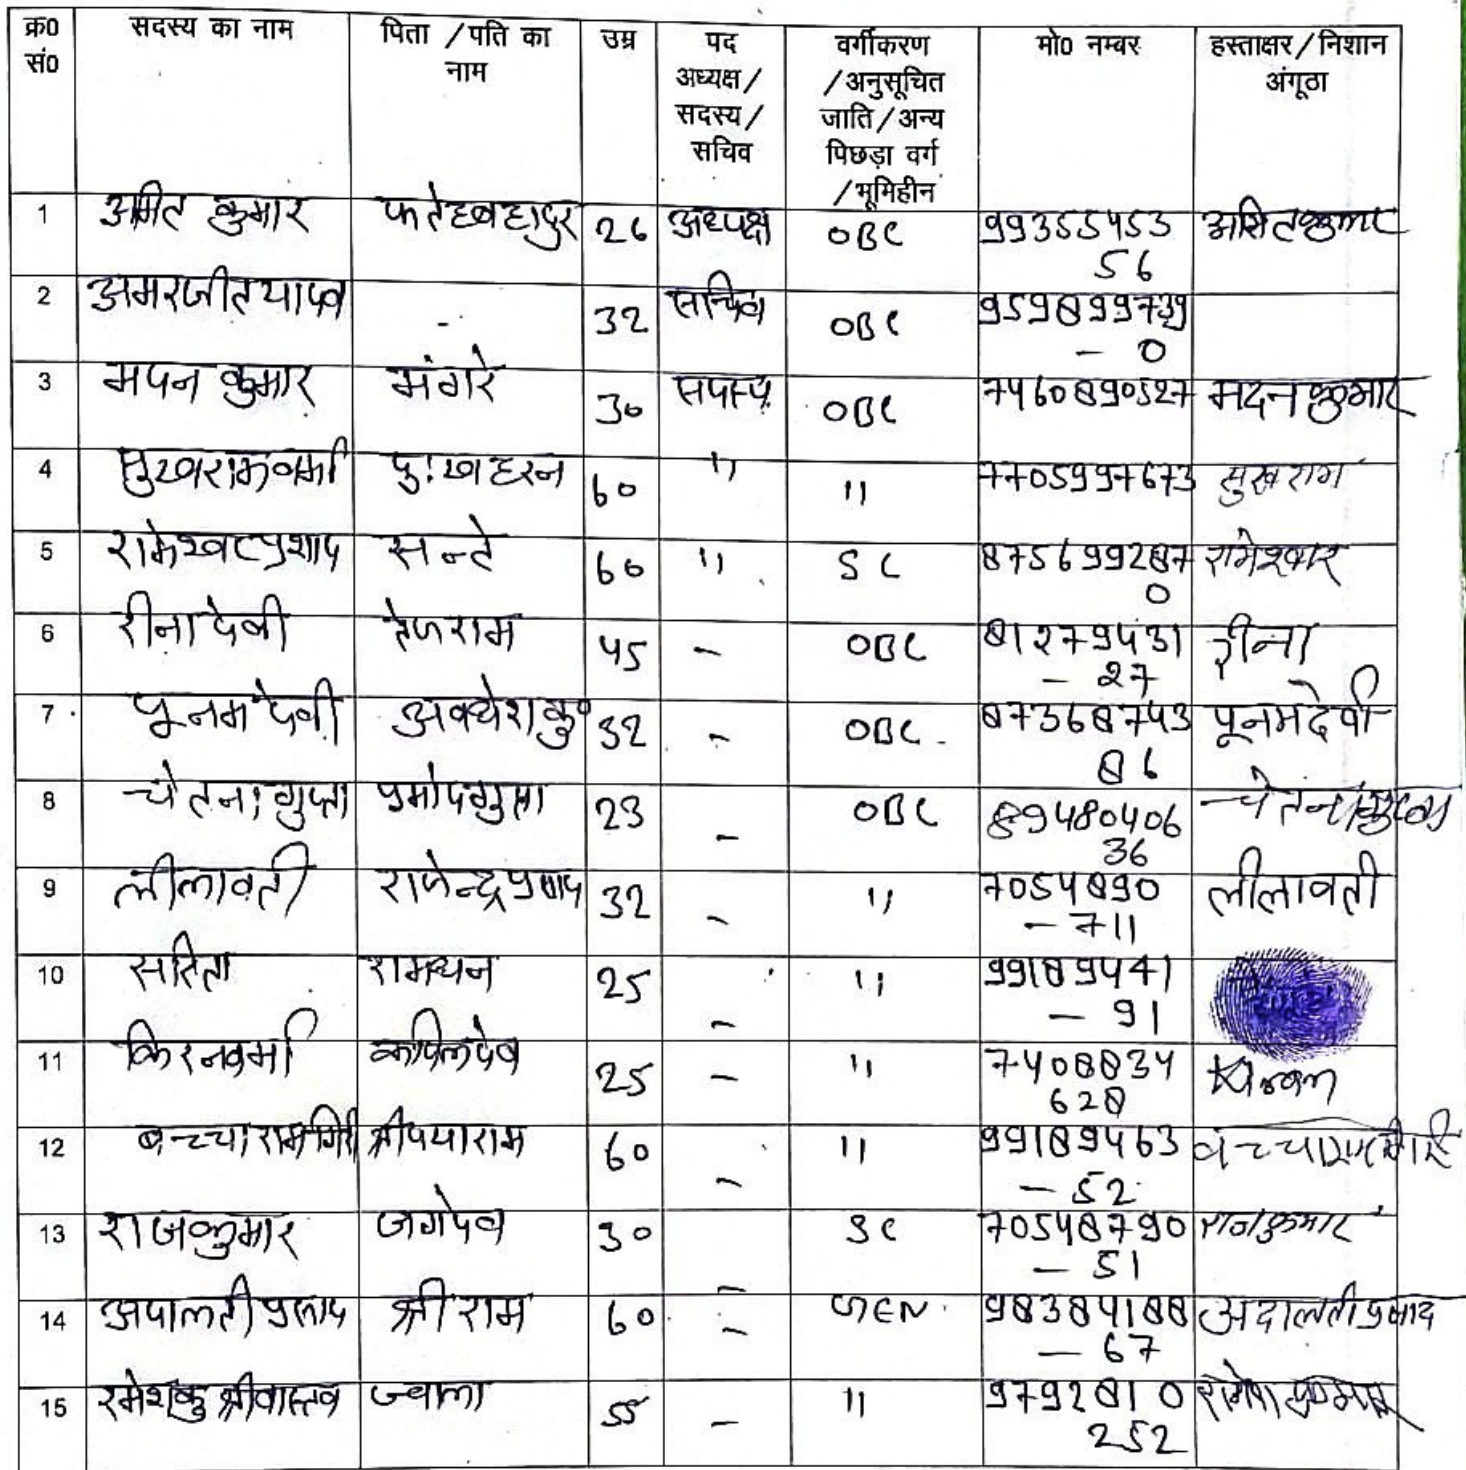 क्र0 सं0 सदस्य का नाम पिता /पति का नाम उम्र पद अध्यक्ष/ सदस्य/ सचिव वर्गीकरण /अनुसूचित जाति/अन्य पिछड़ा वर्ग /भूमिहीन मो0 नम्बर हस्ताक्षर/निशान अंगूठा
1 अमित कुमार फतेहबहादुर 26 अध्यक्ष OBC 9935545356 अमित कुमार
2 अमरजीत यादव - 32 सचिव OBC - 0
3 मदन कुमार मंगरे 30 सदस्य OBC 7460890527 मदन कुमार
4 सुखराम वर्मा दु:खहरन 60 " " 7705997673 सुखराम
5 रामेश्वर प्रशाद सन्ते 60 " SC 8756992870 रामेश्वर
6 रीना देवी तेजराम 45 - OBC 81279431 - 27 रीना
7 पूनम देवी अवधेश कु० 32 - OBC 8736874386 पूनम देवी
8 चेतना गुप्ता प्रमोद गुप्ता 23 - OBC 8948040636 चेतना गुप्ता
9 लीलावती राजेन्द्र प्रसाद 32 - " 7054890 - 711 लीलावती
10 सरिता रामधन 25 - " 99189441 - 91
11 किरन वर्मा कपिलदेव 25 - " 7408834628 Kiran
12 बच्चाराम गिरी श्रीदयाराम 60 - " 99189463 - 52 बच्चाराम गिरि
13 राजकुमार जगदेव 30 - SC 70548790 - 51 राजकुमार
14 अदालती प्रसाद श्री राम 60 - GEN 98384188 - 67 अदालती प्रसाद
15 रमेश कु श्रीवास्तव ज्वाला 55 - " 9792810252 रमेश कुमार